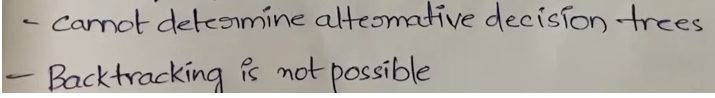 - Cannot determine alternative decision trees
- Backtracking is not possible